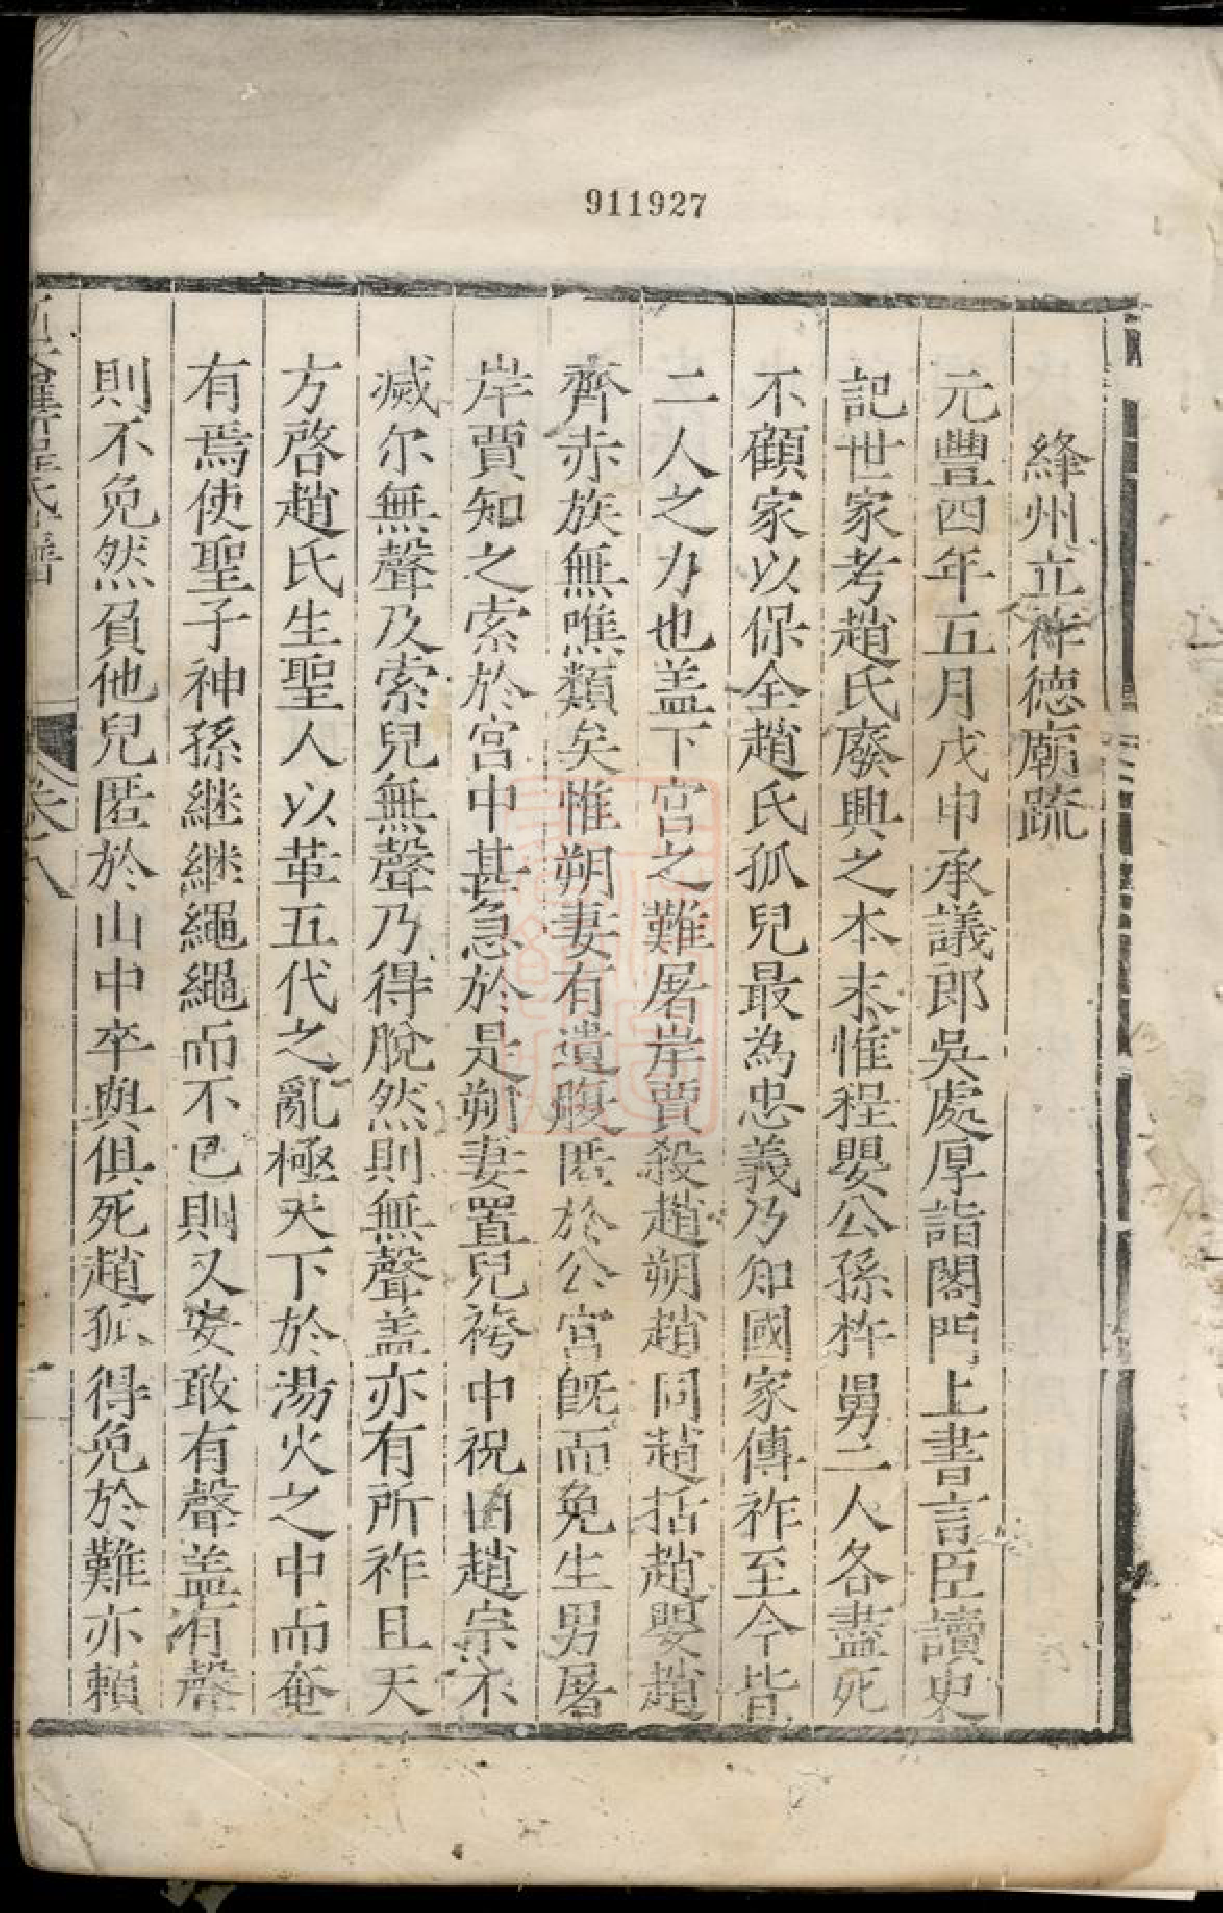 911927
絳州立祚德廟䟽
元豐四年五月戊申承議郎吳處厚詣閣門上書言臣讀史
記世家考趙氏廢興之本末惟程嬰公孫杵臼二人各盡死
不顧家以保全趙氏孤兒最為忠義乃知國家傳祚至今皆
二人之力也盖下宫之難屠岸賈殺趙朔趙同趙括趙嬰趙
齊赤族無噍類矣惟朔妻有遺腹匿於公宫旣而免生男屠
岸賈知之索於宫中甚急於是朔妻置兒袴中祝曰趙宗不
滅尔無聲及索兒無聲乃得脫然則無聲盖亦有所祚且天
方啓趙氏生聖人以革五代之亂極天下於湯火之中而奄
有焉使聖子神孫継継繩繩而不已則又安敢有聲盖有聲
則不免然負他兒匿於山中卒與俱死趙孤得免於難亦賴
程氏譜 卷之八